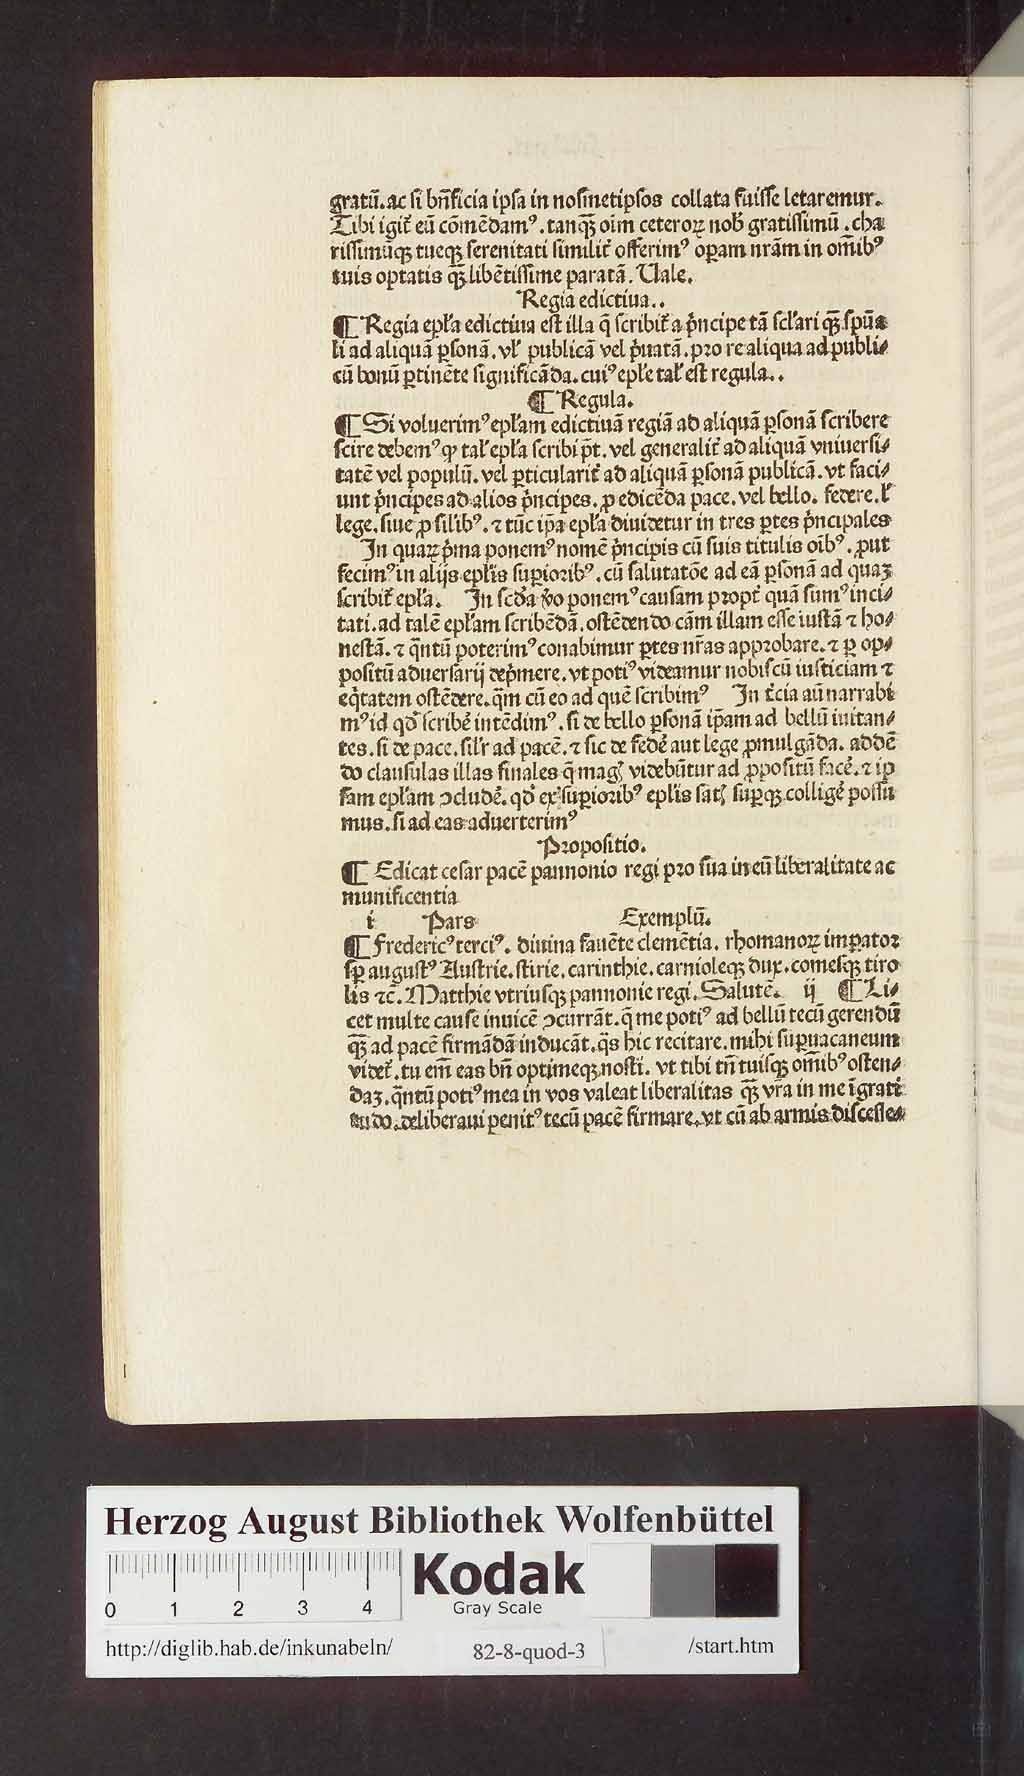 gratū. ac si bn̄ficia ipsa in nosmetipsos collata fuisse letaremur.
Tibi igit᷑ eū cōmēdamꝰ. tanqꝫ̄ oim̄ ceteroꝝ nob̓ gratissimū. cha
rissimūqꝫ tueqꝫ serenitati similit᷑ offerimꝰ oꝑam nr̄am in om̄ibꝰ
tuis optatis qꝫ̄ libētissime paratā. Uale.
Regia edictiua..
¶ Regia epl̄a edictiua est illa q̄ scribit᷑ a pͥncipe tā scl̓ari qꝫ̄ spūa
li ad aliquā ꝑsonā. vl̓ publicā vel pͥuatā. pro re aliqua ad publi⸗
cū bonū ꝑtinēte significāda. cuiꝰ epl̄e tal̓ est regula..
¶ Regula.
¶ Si voluerimꝰ epl̄am edictiuā regiā ad aliquā ꝑsonā scribere
scire debemꝰ ꝙ tal̓ epl̄a scribi pōt. vel generalit᷑ ad aliquā vniuersi⸗
tatē vel populū. vel ꝑticularit᷑ ad aliquā ꝑsonā publicā. vt faci⸗
unt pͥncipes ad alios pͥncipes. ꝓ edicēda pace. vel bello. federe. l̓
lege. siue ꝓ silībꝰ. ⁊ tūc ip̄a epl̄a diuidetur in tres ꝑtes pͥncipales
In quaꝝ pͥma ponemꝰ nomē pͥncipis cū suis titulis oībꝰ. ꝓut
fecimꝰ in alijs epl̄is suꝑioribꝰ. cū salutatōe ad eā ꝑsonā ad quaꝫ
scribit᷑ epl̄a. In scd̄a v̓o ponemꝰ causam propt̓ quā sumꝰ inci⸗
tati. ad talē epl̄am scribēdā. ostēdendo cām illam esse iustā ⁊ ho⸗
nestā. ⁊ qͣntū poterimꝰ conabimur ꝑtes nr̄as approbare. ⁊ ꝑ op⸗
positū aduersarij depͥmere. vt potiꝰ videamur nobiscū iusticiam ⁊
eqͥtatem ostēdere. qͣm cū eo ad quē scribimꝰ In t̓cia aūt narrabi
mꝰ id qd̓ scribe᷑ intēdimꝰ. si de bello ꝑsonā ip̄am ad bellū inuitan⸗
tes. si de pace. sil̓r ad pacē. ⁊ sic de fede᷑ aut lege ꝓmulgāda. addē
do clausulas illas finales q̄ magꝭ videbūtur ad ꝓpositū face᷑. ⁊ ip
sam epl̄am ↄclude᷑. qd̓ ex suꝑioribꝰ epl̄is satꝭ suꝑqꝫ collige᷑ possu
mus. si ad eas aduerterimꝰ
Propositio.
¶ Edicat cesar pacē pannonio regi pro sua in eū liberalitate ac
munificentia
i Pars Exemplū.
¶ Fredericꝰ terciꝰ. diuina fauēte clemētia. rhomanoꝝ imꝑator
sꝑ augustꝰ Austrie. stirie. carinthie. carnioleqꝫ dux. comesqꝫ tiro
lis ⁊c̄. Matthie vtriusqꝫ pannonie regi. Salutē. ij ¶ Li⸗
cet multe cause inuicē ↄcurrāt. q̄ me potiꝰ ad bellū tecū gerendū
qꝫ̄ ad pacē firmādā inducāt. qͣs hic recitare. mihi suꝑuacaneum
videt᷑. tu em̄ eas bn̄ optimeqꝫ nosti. vt tibi tn̄ tuisqꝫ om̄ibꝰ osten⸗
daꝫ. qͣntū potiꝰ mea in vos valeat liberalitas qꝫ̄ vr̄a in me īgrati
tudo. deliberaui penitꝰ tecū pacē firmare. vt cū ab armis discesse⸗
Herzog August Bibliothek Wolfenbüttel
0 1 2 3 4
Kodak
Gray Scale
http://diglib.hab.de/inkunabeln/ 82-8-quod-3 /start.htm